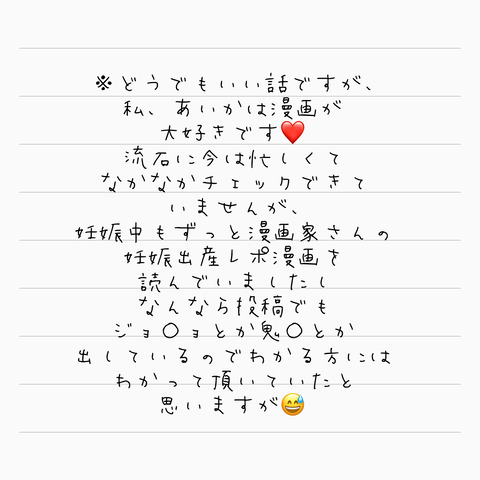 ※どうでもいい話ですが、
私、あいかは漫画が
大好きです❤️
流石に今は忙しくて
なかなかチェックできて
いませんが、
妊娠中もずっと漫画家さんの
妊娠出産レポ漫画を
読んでいましたし
なんなら投稿でも
ジョ〇ョとか鬼〇とか
出しているのでわかる方には
わかって頂いていたと
思いますが😅